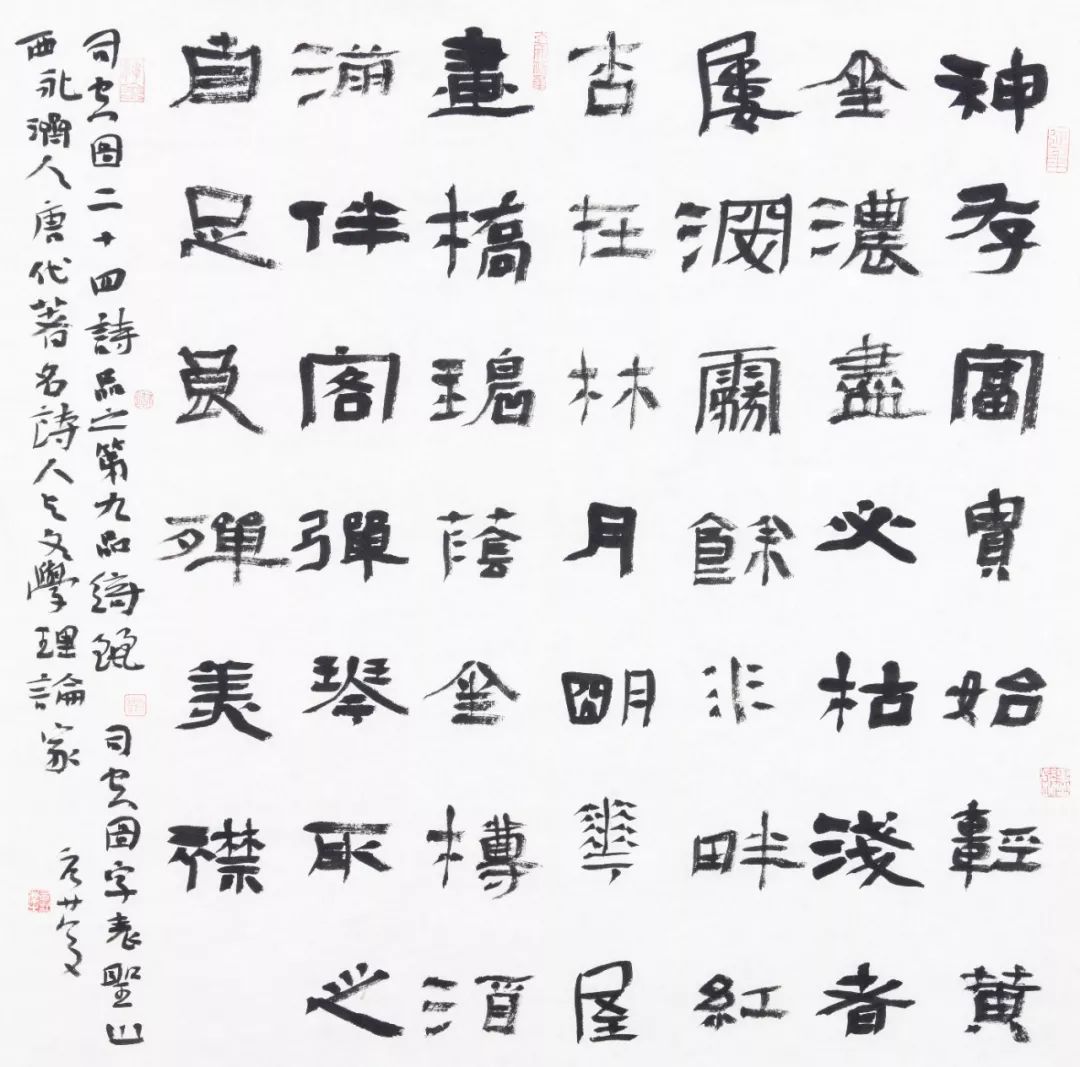 神存富貴始輕黃
金濃盡必枯淺者
屢深霧餘水畔紅
杏在林月明華屋
畫橋碧蔭金樽酒
滿伴客彈琴取之
自足良殫美襟
司空圖二十四詩品之第九品綺麗 司空圖字表聖山
西永濟人唐代著名詩人与文學理論家